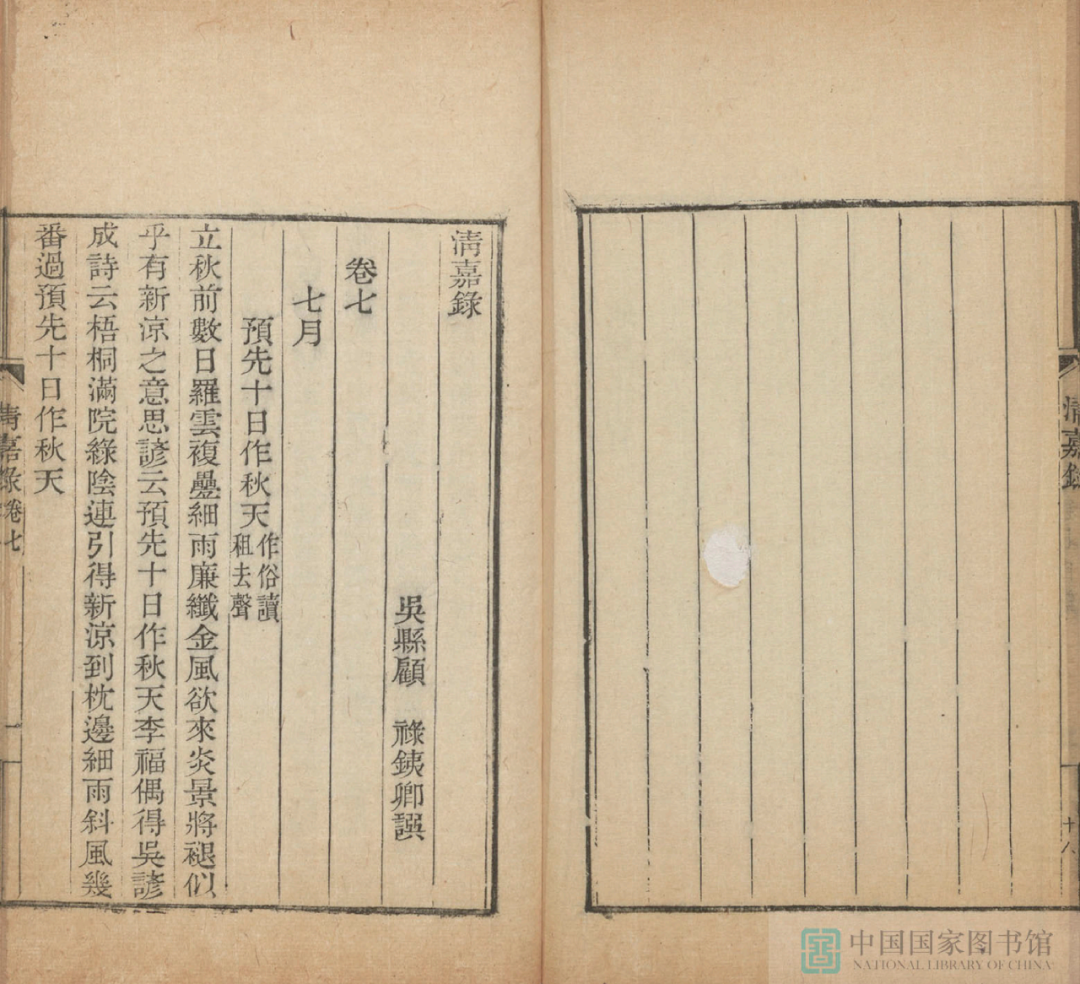 清嘉錄
十八
清嘉錄
吳縣顧　祿鐵卿譔
卷七
七月
預先十日作秋天作俗讀租去聲
立秋前數日羅雲複疊細雨廉纖金風欲來炎景將褪似
乎有新涼之意思諺云預先十日作秋天李福偶得吳諺
成詩云梧桐滿院綠陰連引得新涼到枕邊細雨斜風幾
番過預先十日作秋天
清嘉錄卷七
一
中国国家图书馆
NATIONAL LIBRARY OF CHINA